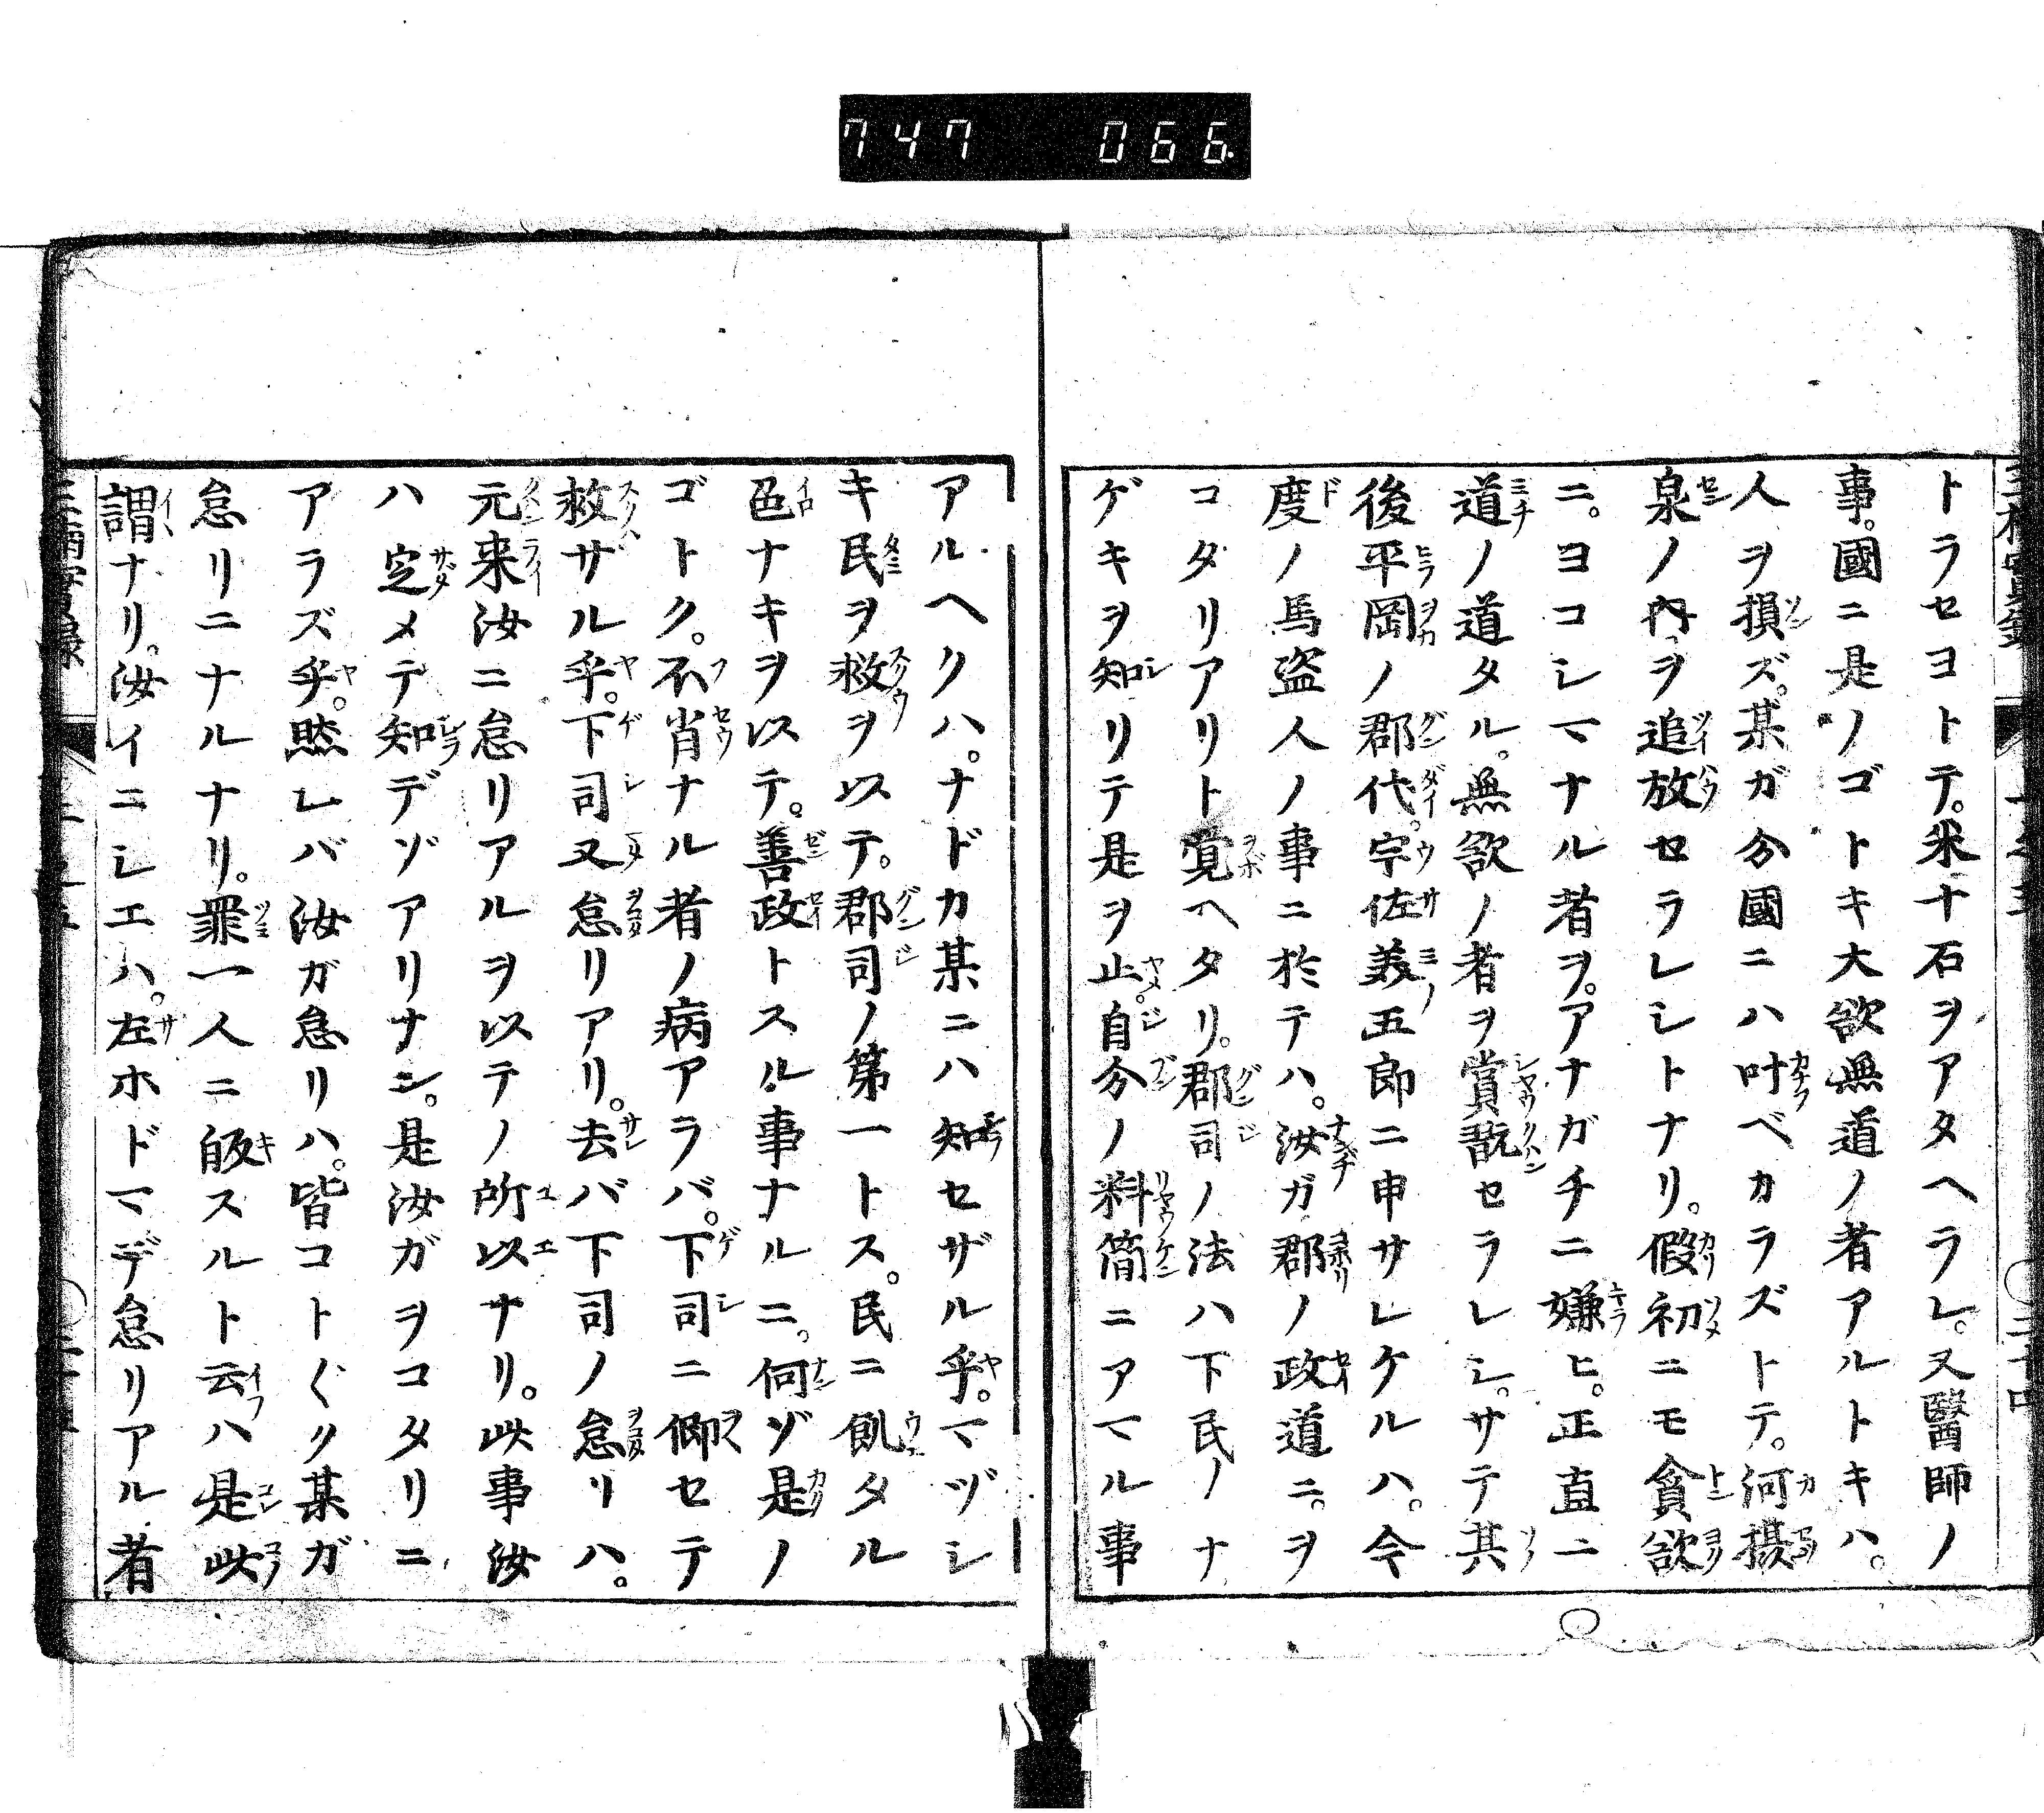 747 066.
トラセヨトテ。米十石ヲアタヘラレ。又醫師ノ
事。國ニ是ノゴトキ大欲無道ノ者アルトキハ。
人ヲ損ズ。某ガ分國ニハ叶ベカラズトテ。河攝
泉ノ内ヲ追放セラレシトナリ。假初ニモ貪欲
ニ。ヨコシマナル者ヲ。アナガチニ嫌ヒ。正直ニ
道ノ道タル。無欲ノ者ヲ賞翫セラレシ。サテ其
後平岡ノ郡代。宇佐美五郎ニ申サレケルハ。今
度ノ馬盗人ノ事ニ於テハ。汝ガ郡ノ政道ニ。ヲ
コタリアリト覚ヘタリ。郡司ノ法ハ下民ノナ
ゲキヲ知リテ是ヲ止。自分ノ料簡ニアマル事
アルヘクハ。ナドカ某ニハ知セザル乎。マヅシ
キ民ヲ救ヲ以テ。郡司ノ第一トス。民ニ飢タル
色ナキヲ以テ。善政トスル事ナルニ。何ゾ是ノ
ゴトク。不肖ナル者ノ病アラバ。下司ニ仰セテ
救ザル乎。下司又怠リアリ。去バ下司ノ怠リハ。
元来汝ニ怠リアルヲ以テノ所以ナリ。此事汝
ハ定メテ知デゾアリナン。是汝ガヲコタリニ
アラズ乎。然レバ汝ガ怠リハ。皆コトぐク某ガ
怠リニナルナリ。罪一人ニ皈スルト云ハ是此
謂ナリ。汝イニシエハ。左ホドマデ怠リアル者